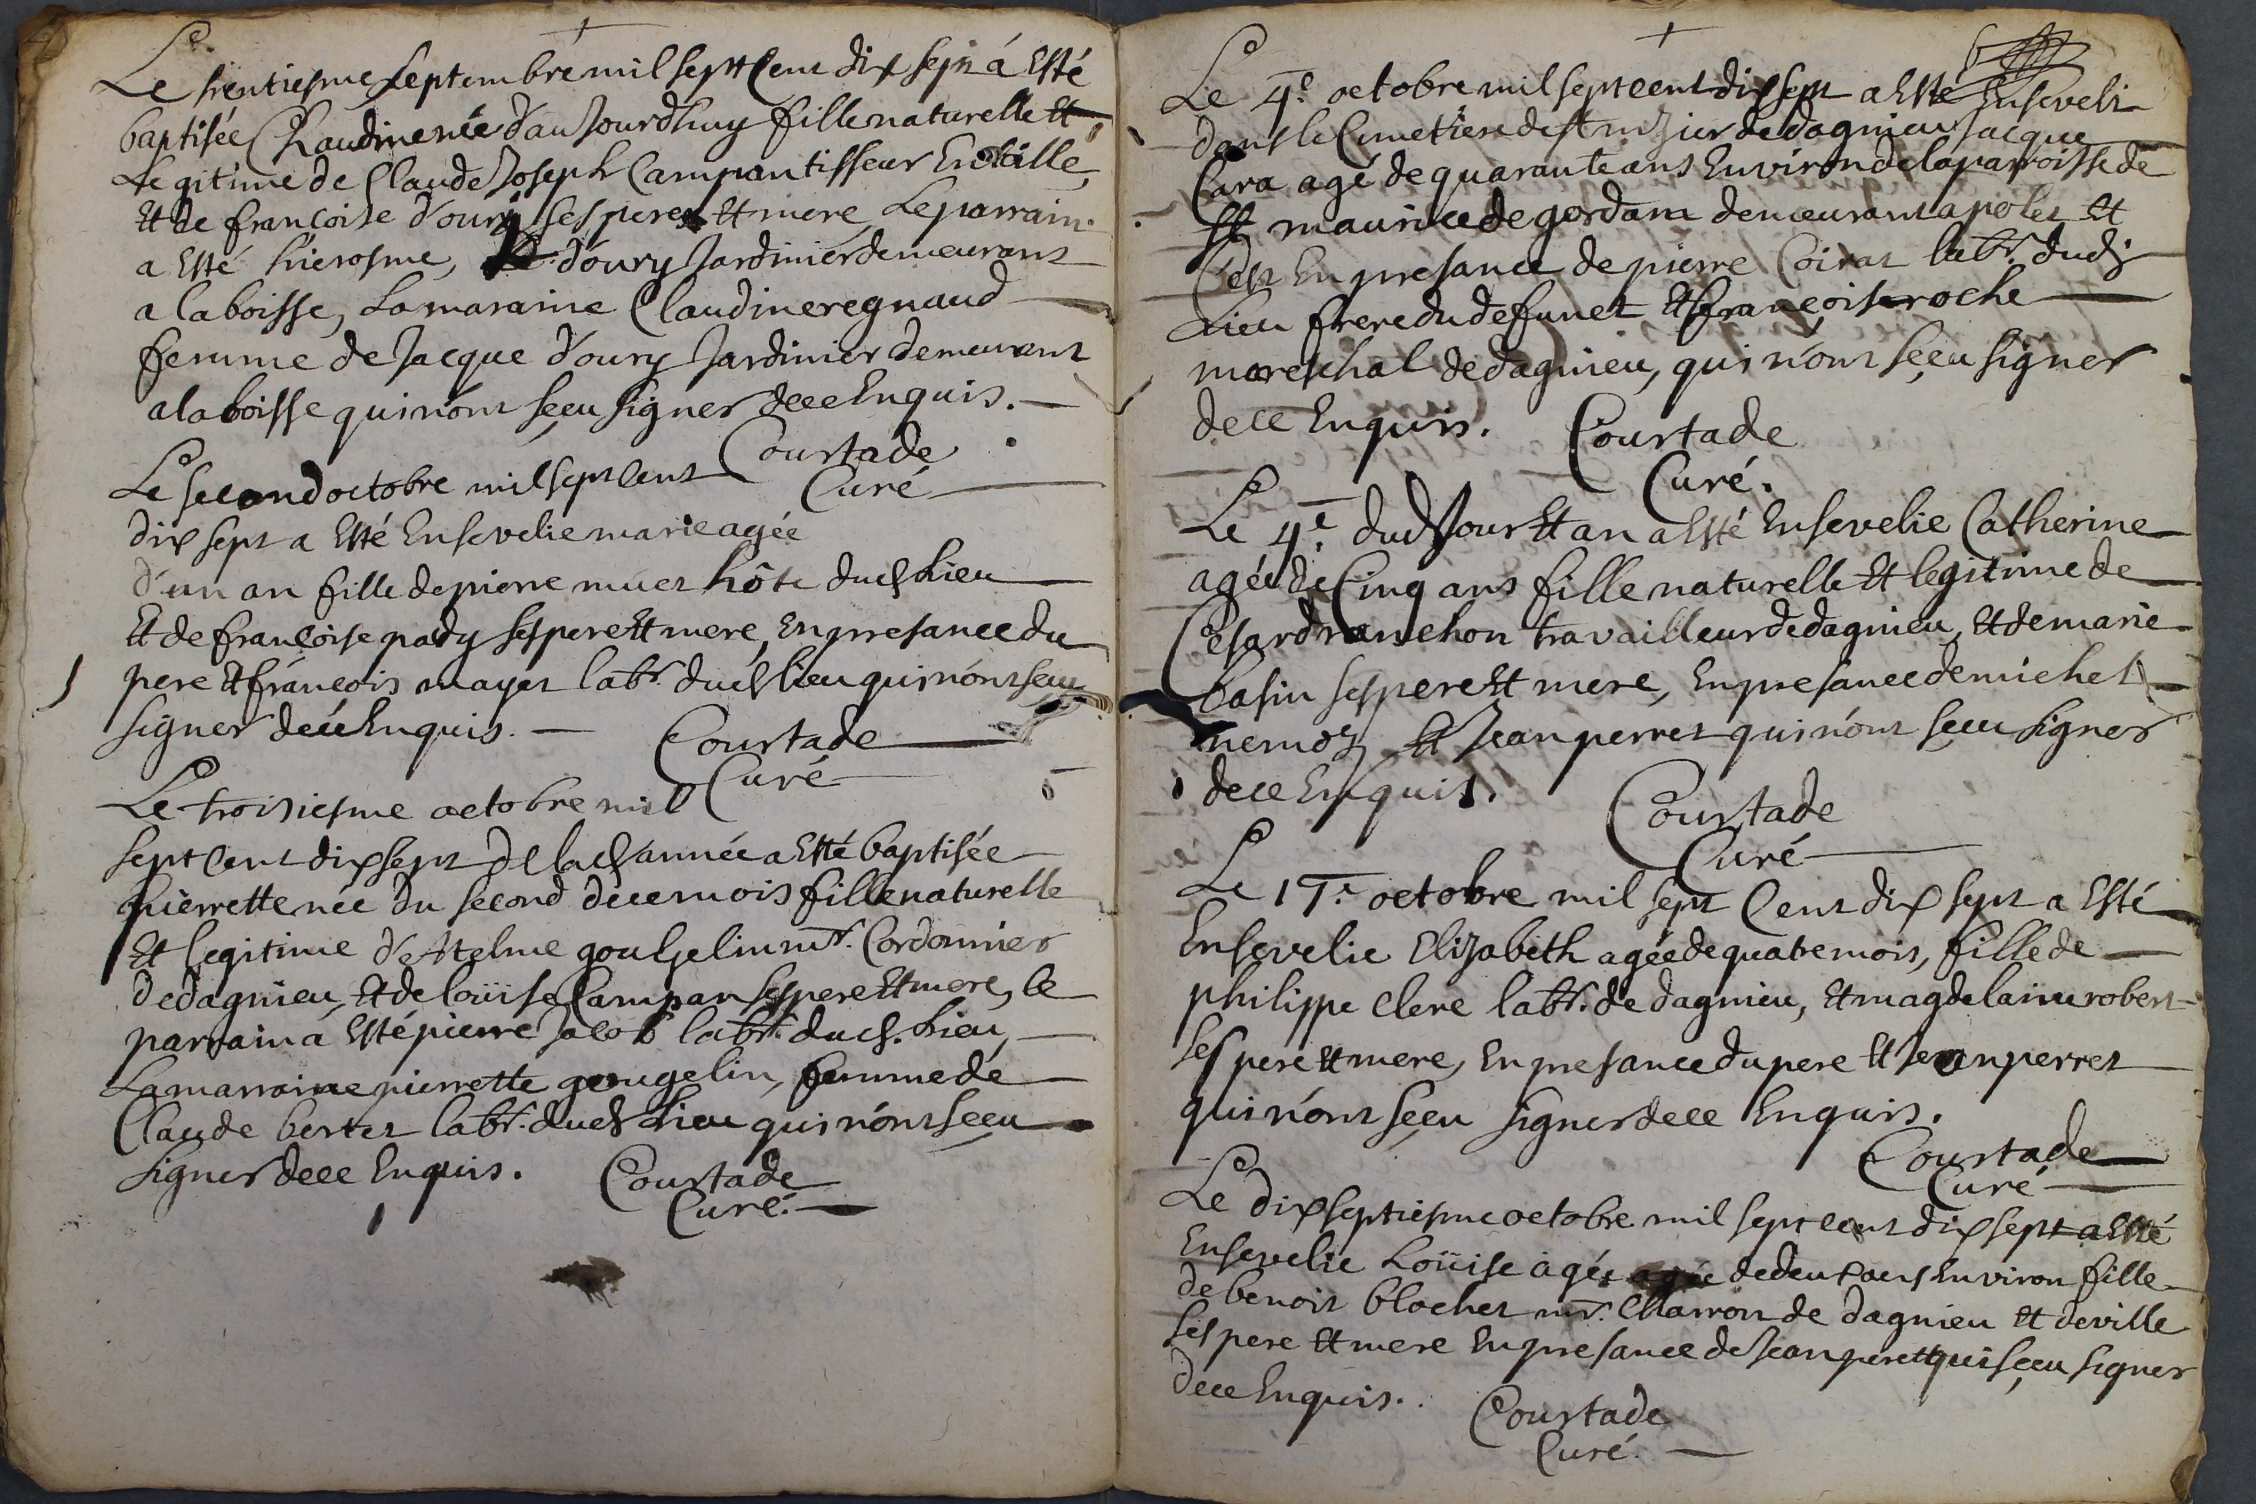 Le trentiesme septembre mil sept Cent dix sept á Esté
baptisée Claudine née d'au Jourdhuy fille naturelle Et
Legitime de Claude Joseph Campan tisseur En toille
Et de françoise d'oury ses pere Et mere Le parrain
a Esté hierosme, d'oury Jardinier demeurant
a la boisse, La maraine Claudine regnaud
femme de Jacque d'oury Jardinier demeurant
a la boisse qui n'ont sçeu signer dece Enquis.
Courtade
Curé
Le second octobre mil sept Cent
dix sept a Esté Ensevelie marie agée
d'un an fille de pierre muet hôte dud Lieu
Et de françoise pady ses pere Et mere, En presance du
pere Et françois mayet labr. dud lieu qui n'ont sceu
signer dece Enquis.
Courtade
Curé
Le troisiesme octobre mil
sept Cent dix sept de lad année a Esté baptisée
pierrette née du second dece mois fille naturelle
Et legitime d'Atelme goujelin mr. Cordonnier
de dagnieu, Et de loüise Campan ses pere Et mere, le
parrain á Esté pierre Jacob labr. dud. Lieu,
La marraine pierrette gougelin, femme de
Claude bertet labr. dud Lieu qui n'ont sçeu
signer dece Enquis.
Courtade
Curé.
6
Le 4e. octobre mil sept cent dix sept a Esté Enseveli
dans le Cimetiere de de dagnieu Jacque
Cara agé de quarante ans Environ de la parroisse de
St maurice de gordans demeurant a polet Et
C'est En presance de pierre Coirat labr. dud
Lieu frere du defunct Et françois roche
mareschal de dagnieu, qui n'ont sçeu signer
dece Enquis.
Courtade
Curé.
Le 4e. dud Jour Et an a Esté Ensevelie Catherine
agée de Cinq ans fille naturelle Et legitime de
Cesard ranchon travailleur de dagnieu, Et de marie
basin ses pere Et mere, En presance de michel
nemoz Et Jean perret qui n'ont sçeu signer
dece Enquis.
Courtade
Curé
Le 17e. octobre mil sept Cent dix sept a Esté
Ensevelie Elizabeth agée de quatre mois, fille de
philippe Clere labr. de dagnieu, Et magdelaine robert
ses pere Et mere, En presance du pere Et Jean perret
qui n'ont sçeu signer dece Enquis.
Courtade
Curé
Le dix septiesme octobre mil sept cent dix sept a Esté
Ensevelie Loüise agée agée de deux ans Environ fille
de benoit blochet mr. Charron de dagnieu Et deville
ses pere Et mere En presance de Jean perett qui sçeu signer
dece Enquis.
Courtade
Curé.